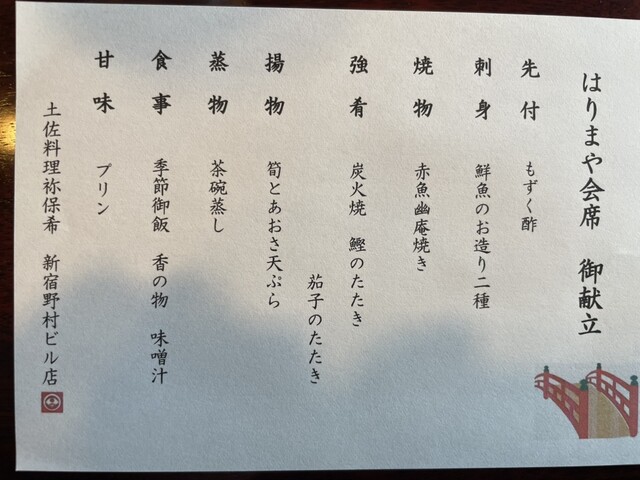 はりまや会席　御献立
先付　もずく酢
刺身　鮮魚のお造り二種
焼物　赤魚幽庵焼き
強肴　炭火焼　鰹のたたき
茄子のたたき
揚物　筍とあおさ天ぷら
蒸物　茶碗蒸し
食事　季節御飯　香の物　味噌汁
甘味　プリン
土佐料理祢保希　新宿野村ビル店